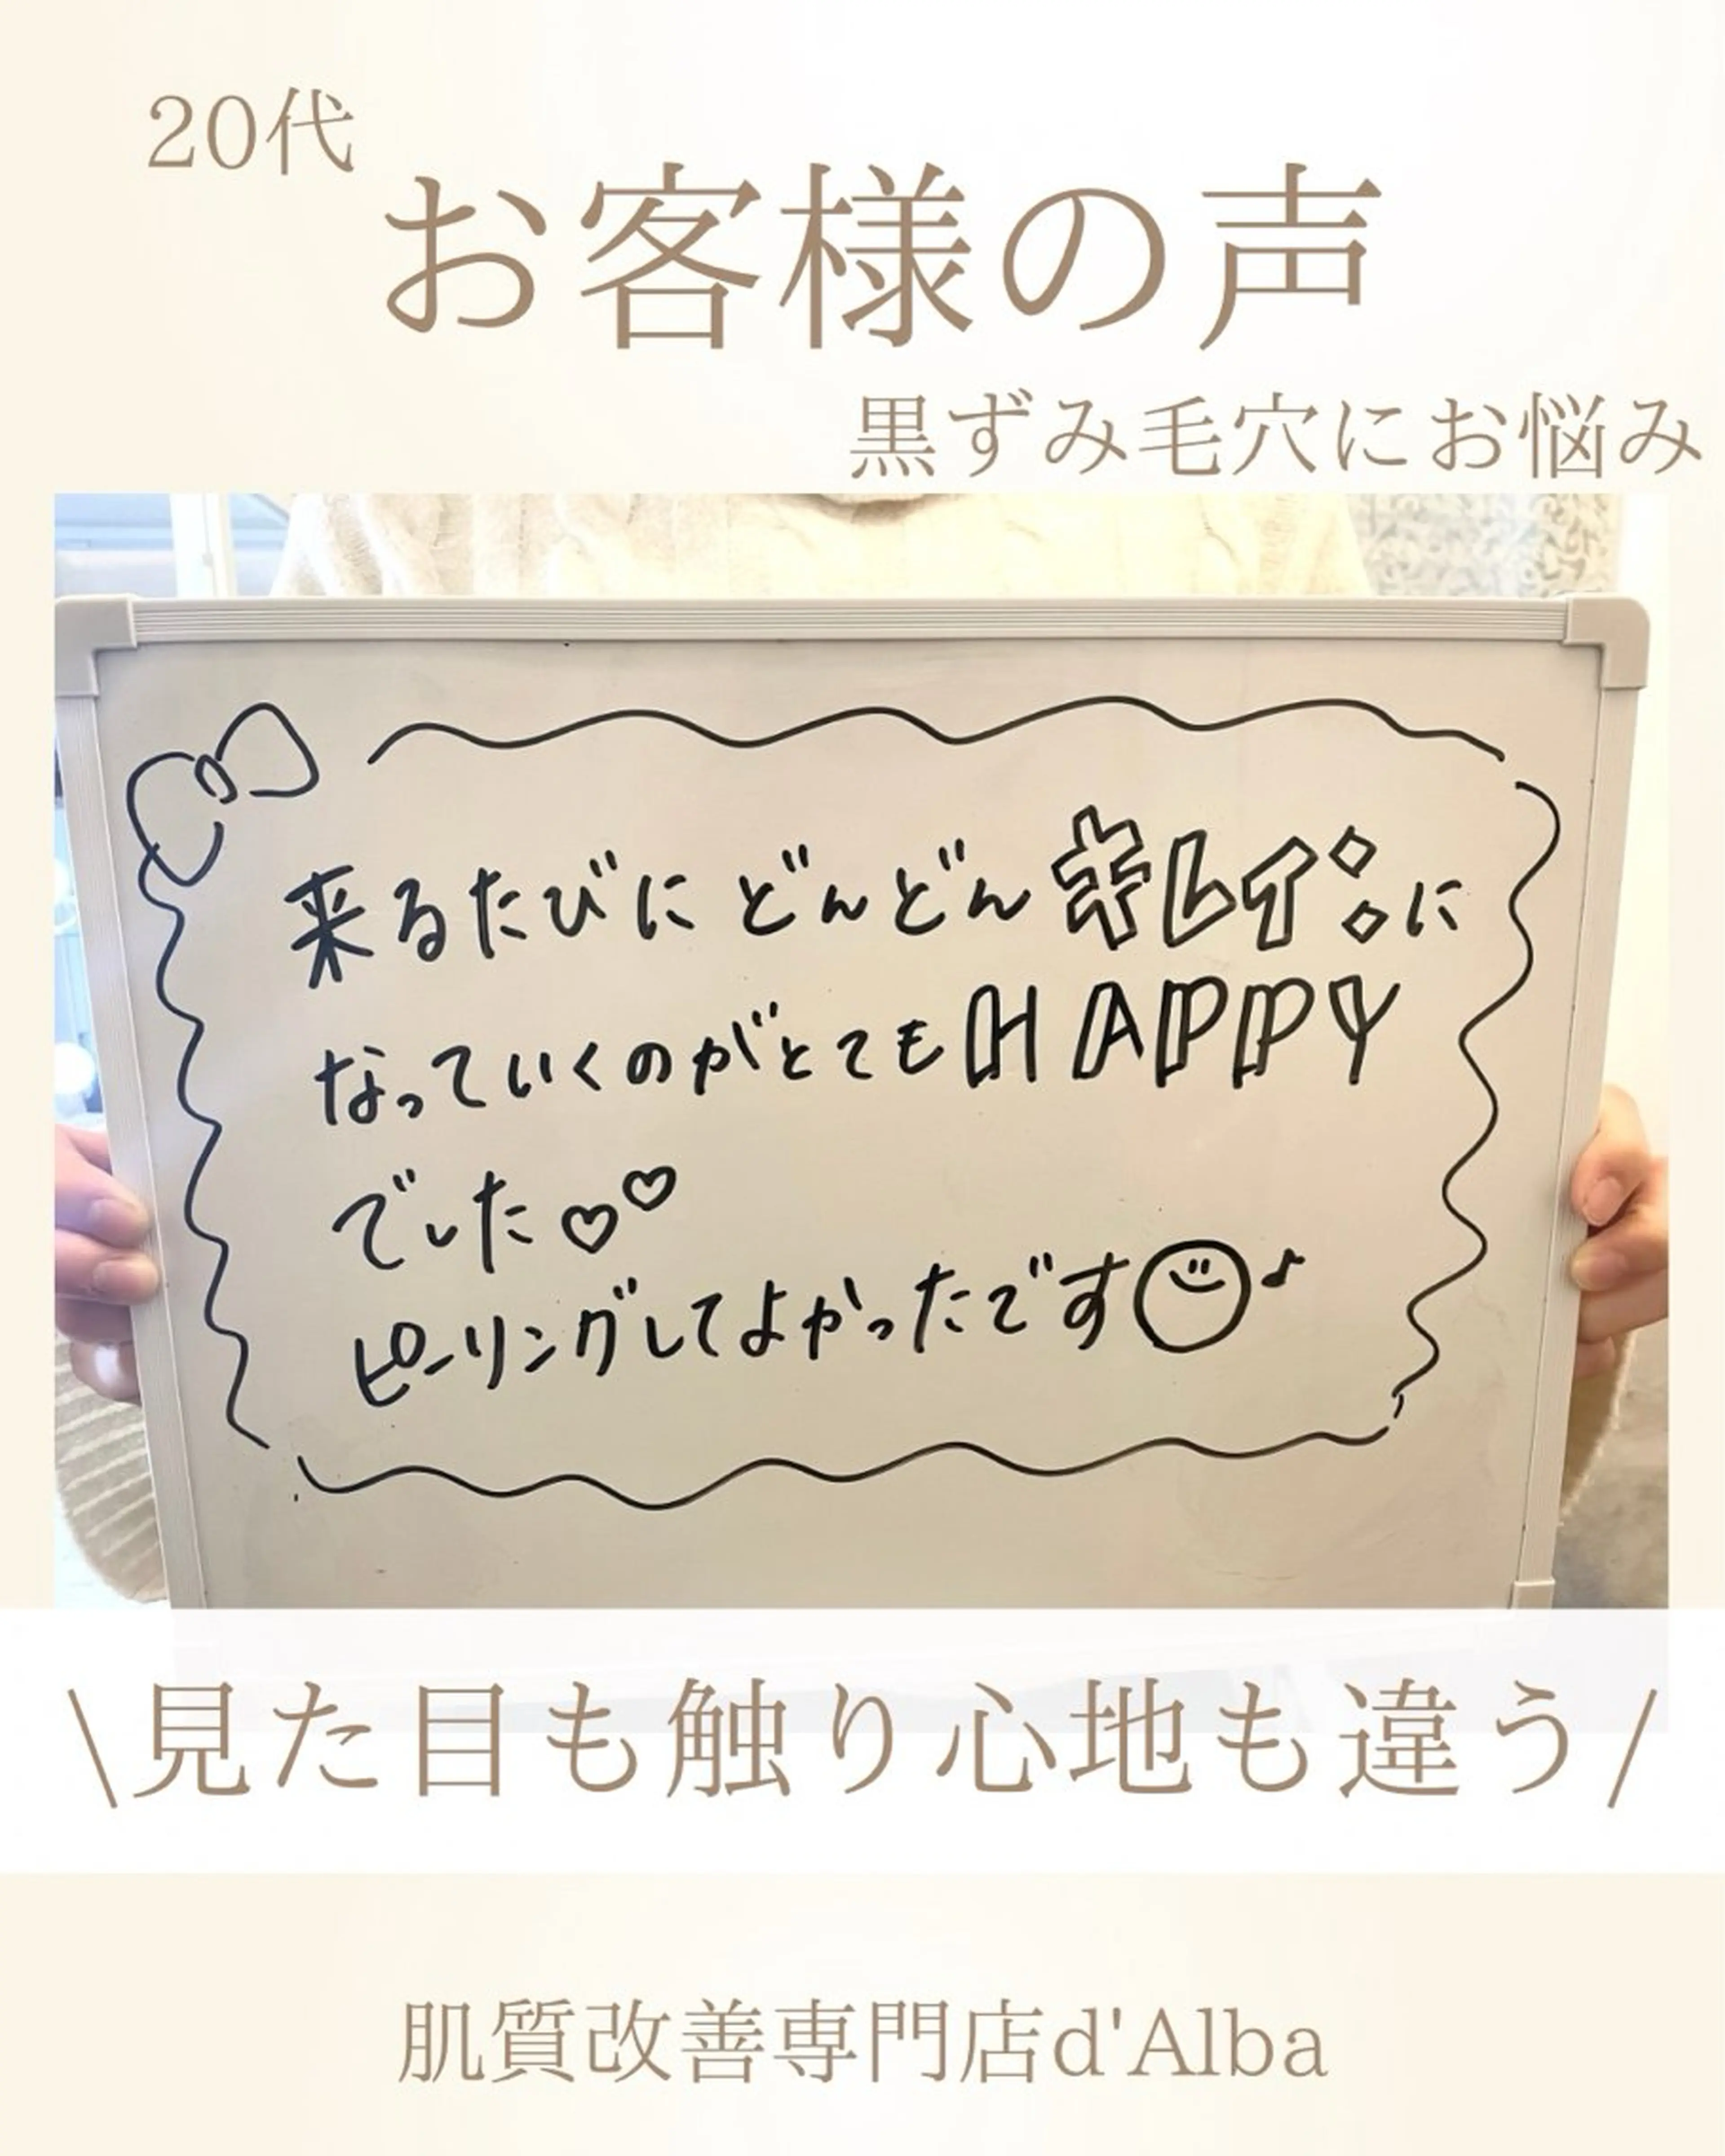 20代
お客様の声
黒ずみ毛穴にお悩み
来るたびにどんどんキレイに
なっていくのがとてもHAPPY
でした♡♡
ピーリングしてよかったです☺♪
\見た目も触り心地も違う/
肌質改善専門店d'Alba